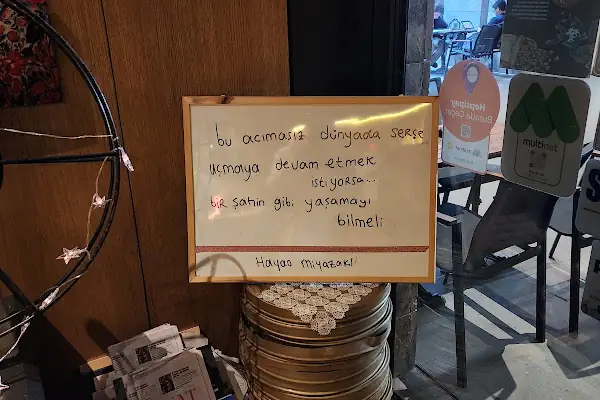 bu acımasız dünyada serçe
uçmaya devam etmek
istiyorsa...
bir şahin gibi yaşamayı
bilmeli...
Hayao miyazaki
Hepsipay
Burada Geçer
multinet